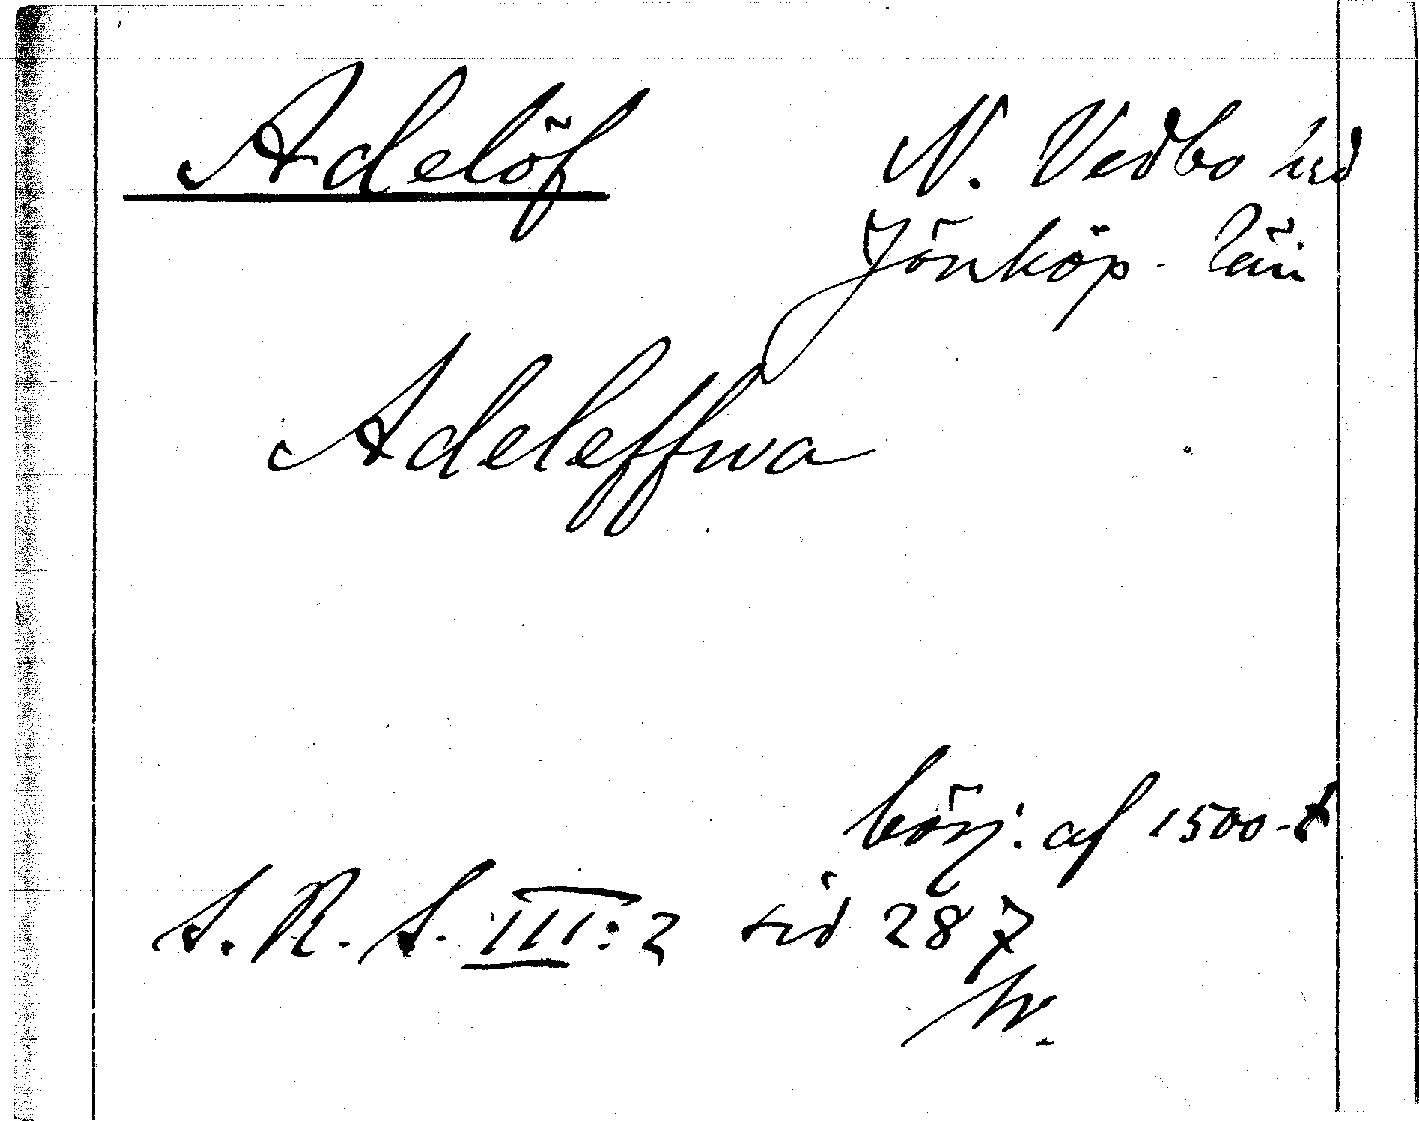 Adelöf N. Vedbo hd
Jönköp. län
Adeleffwa
börj. af 1500-t
S. R. S. III:2 sid 287